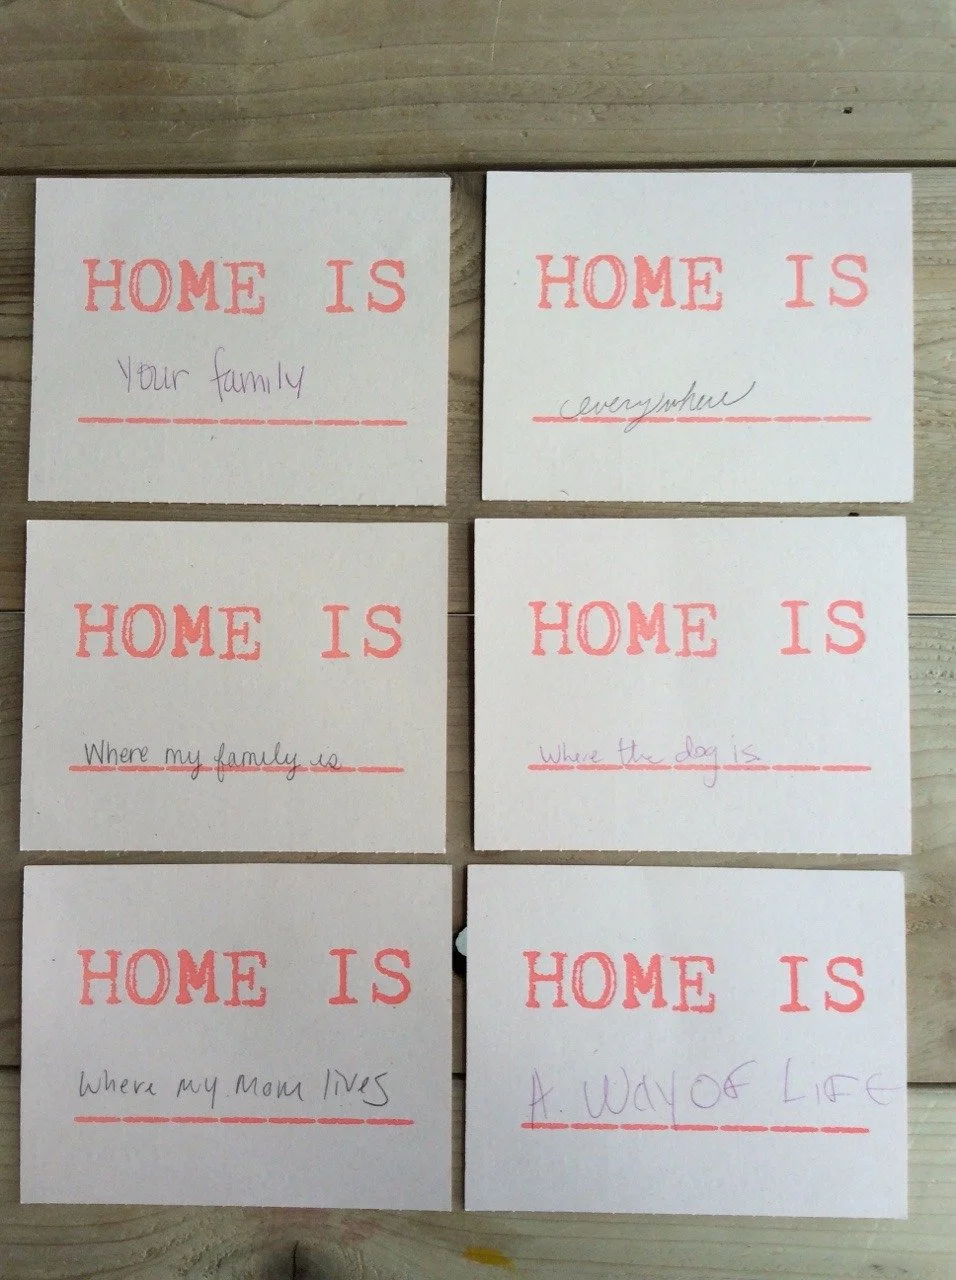 HOME IS
Your family
HOME IS
everywhere
HOME IS
Where my family is
HOME IS
where the dog is.
HOME IS
Where my Mom lives
HOME IS
A. WAY OF LIFE